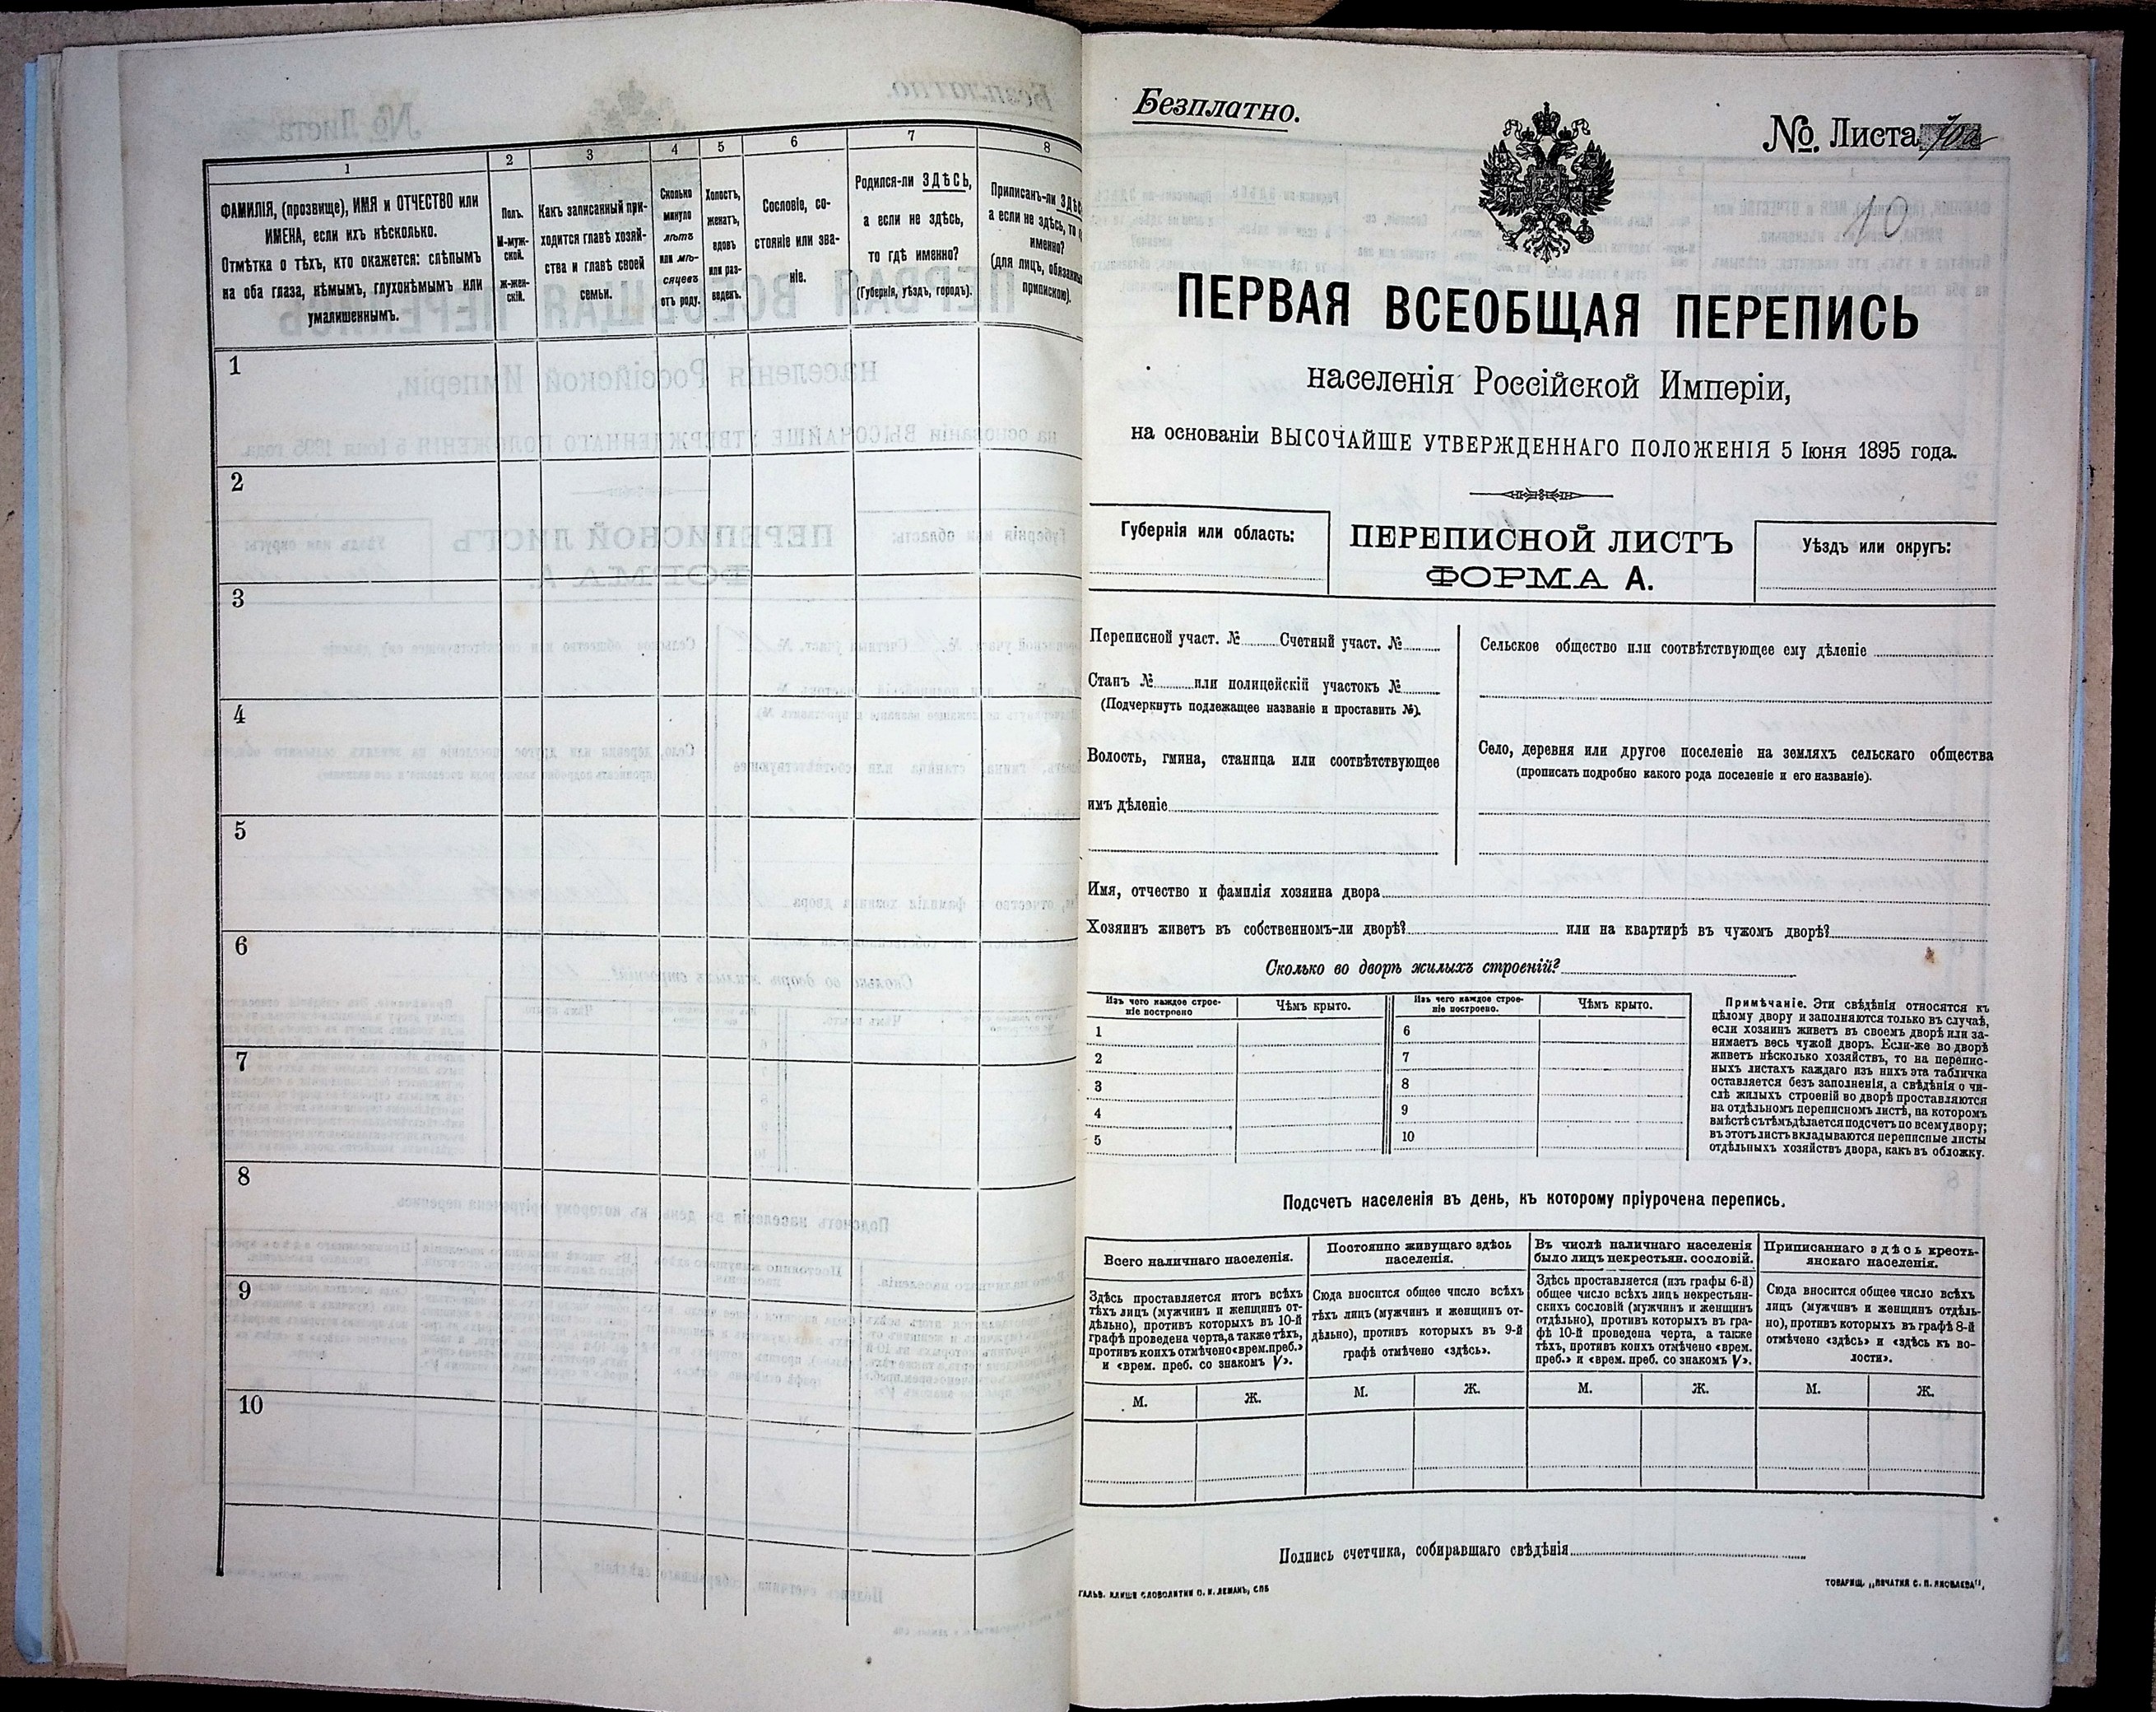 1
2
3
4
5
6
7
8
ФАМИЛІЯ, (прозвище), ИМЯ и ОТЧЕСТВО или
ИМЕНА, если ихъ нѣсколько.
Отмѣтка о тѣхъ, кто окажется: слѣпымъ
на оба глаза, нѣмымъ, глухонѣмымъ или
умалишеннымъ.
Полъ.
М-муж-
ской.
Ж-жен-
скій.
Какъ записанный при-
ходится главѣ хозяй-
ства и главѣ своей
семьи.
Сколько
минуло
лѣтъ
или мѣ-
сяцевъ
отъ роду.
Холостъ,
женатъ,
вдовъ
или раз-
веденъ.
Сословіе, со-
стояніе или зва-
ніе.
Родился-ли ЗДѢСЬ,
а если не здѣсь,
то гдѣ именно?
(Губернія, уѣздъ, городъ).
Приписанъ-ли
а если не здѣсь, то
именно?
(для лицъ,
припискою).
1
2
3
4
5
6
7
8
9
10
Безплатно.
№ Листа
10
ПЕРВАЯ ВСЕОБЩАЯ ПЕРЕПИСЬ
населенія Россійской Имперіи,
на основаніи ВЫСОЧАЙШЕ УТВЕРЖДЕННАГО ПОЛОЖЕНІЯ 5 Іюня 1895 года.
Губернія или область:
ПЕРЕПИСНОЙ ЛИСТЪ
ФОРМА А.
Уѣздъ или округъ:
Переписной участ. № Счетный участ. №
Станъ № или полицейскій участокъ №
(Подчеркнуть подлежащее названіе и проставить №).
Волость, гмина, станица или соотвѣтствующее
имъ дѣленіе
Сельское общество или соотвѣтствующее ему дѣленіе
Село, деревня или другое поселеніе на земляхъ сельскаго общества
(прописать подробно какого рода поселеніе и его названіе).
Имя, отчество и фамилія хозяина двора
Хозяинъ живетъ въ собственномъ-ли дворѣ? или на квартирѣ въ чужомъ дворѣ?
Сколько во дворѣ жилыхъ строеній?
Изъ чего каждое строе-
ніе построено
Чѣмъ крыто.
Изъ чего каждое строе-
ніе построено.
Чѣмъ крыто.
1
2
3
4
5
6
7
8
9
10
Примѣчаніе. Эти свѣдѣнія относятся къ
цѣлому двору и заполняются только въ случаѣ,
если хозяинъ живетъ въ своемъ дворѣ или за-
нимаетъ весь чужой дворъ. Если-же во дворѣ
живетъ нѣсколько хозяйствъ, то на перепис-
ныхъ листахъ каждаго изъ нихъ эта табличка
оставляется безъ заполненія, а свѣдѣнія о чи-
слѣ жилыхъ строеній во дворѣ проставляются
на отдѣльномъ переписномъ листѣ, на которомъ
вмѣстѣ съ тѣмъ дѣлается подсчетъ по всему двору;
въ этотъ листъ вкладываются переписные листы
отдѣльныхъ хозяйствъ двора, какъ въ обложку.
Подсчетъ населенія въ день, къ которому пріурочена перепись.
Всего наличнаго населенія.
Здѣсь проставляется итогъ всѣхъ
тѣхъ лицъ (мужчинъ и женщинъ от-
дѣльно), противъ которыхъ въ 10-й
графѣ проведена черта, а также тѣхъ,
противъ коихъ отмѣчено «врем. преб.»
и «врем. преб. со знакомъ V».
Постоянно живущаго здѣсь
населенія.
Сюда вносится общее число всѣхъ
тѣхъ лицъ (мужчинъ и женщинъ от-
дѣльно), противъ которыхъ въ 9-й
графѣ отмѣчено «здѣсь».
Въ числѣ наличнаго населенія
было лицъ некрестьян. сословій.
Здѣсь проставляется (изъ графы 6-й)
общее число всѣхъ лицъ некрестьян-
скихъ сословій (мужчинъ и женщинъ
отдѣльно), противъ которыхъ въ гра-
фѣ 10-й проведена черта, а также
тѣхъ, противъ коихъ отмѣчено «врем.
преб.» и «врем. преб. со знакомъ V».
Приписаннаго здѣсь кресть-
янскаго населенія.
Сюда вносится общее число всѣхъ
лицъ (мужчинъ и женщинъ отдѣль-
но), противъ которыхъ въ графѣ 8-й
отмѣчено «здѣсь» и «здѣсь къ во-
лости».
М.
Ж.
М.
Ж.
М.
Ж.
М.
Ж.
Подпись счетчика, собиравшаго свѣдѣнія
ГАЛЬВ. КЛИШЕ СЛОВОЛИТНИ О. И. ЛЕМАНЪ, СПБ
ТОВАРИЩ. „ПЕЧАТНЯ С. П. ЯКОВЛЕВА“,